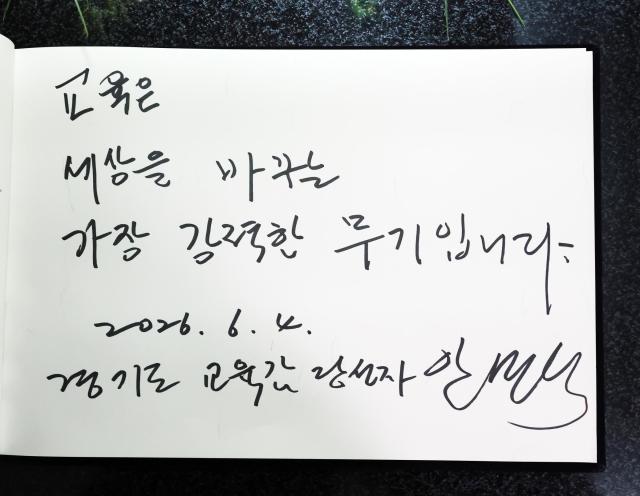 교육은
세상을 바꾸는
가장 강력한 무기입니다.
2026. 6. 4.
경기도 교육감 당선자 안민석